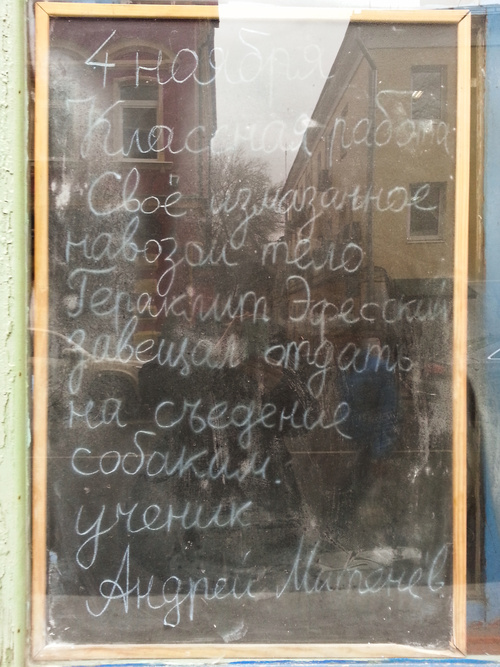 4 ноября
Классная работа
Своё измазанное
навозом тело
Гераклит Эфесский
завещал отдать
на съедение
собакам.
ученик
Андрей